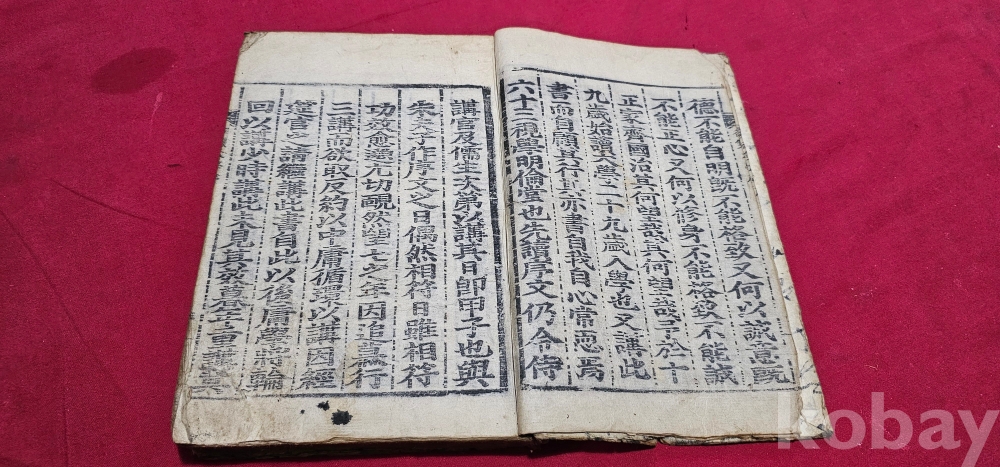 德不能自明旣不能格致又何以誠意旣
不能正心又何以修身不能格致不能誠
正家齊國治其何望哉其何望哉予於十
九歲始讀大學二十九歲入學也又講此
書而自顧其行其亦書自我自心常恧焉
六十三視學明倫堂也先讀序文仍令侍
講官及儒生次第以講其日卽甲子也與
朱夫子作序文之日偶然相符日雖相符
功效愈邈尤切靦然望七之年因追慕行
三講而欲取反約以中庸循環以講因經
筵官之請繼講此書自此以後庸學將輪
回以講少時講此未見其效暮年重講
kobay